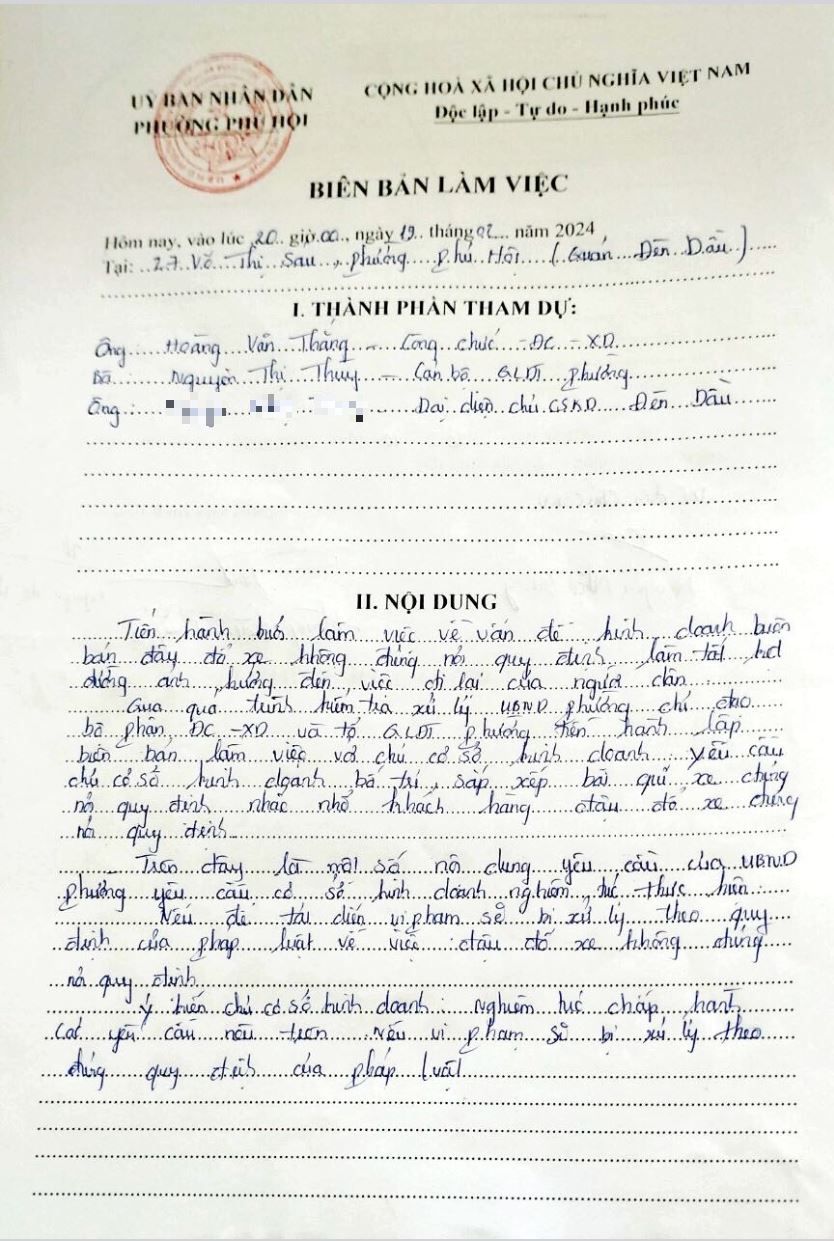 UỶ BAN NHÂN DÂN
PHƯỜNG PHÚ HỘI
CỘNG HOÀ XÃ HỘI CHỦ NGHĨA VIỆT NAM
Độc lập - Tự do - Hạnh phúc
BIÊN BẢN LÀM VIỆC
Hôm nay, vào lúc 20 giờ 00, ngày 19 tháng 02 năm 2024,
Tại: 27 Võ Thị Sáu, phường Phú Hội (Quán Đèn Dầu)
I. THÀNH PHẦN THAM DỰ:
Ông: Hoàng Văn Thắng - Công chức - ĐC - XD
Bà: Nguyễn Thị Thuỷ - Cán bộ QLĐT phường
Ông: Đại diện chủ CSKD Đèn Dầu
II. NỘI DUNG
Tiến hành buổi làm việc về vấn đề kinh doanh buôn
bán đậu đỗ xe không đúng nơi quy định, lòng đường
ảnh hưởng đến việc đi lại của người dân.
Qua quá trình kiểm tra xử lý UBND phường chỉ đạo
bộ phận ĐC - XD và tổ QLĐT phường tiến hành lập
biên bản làm việc với chủ cơ sở kinh doanh yêu cầu
chủ cơ sở kinh doanh bố trí, sắp xếp bãi giữ xe đúng
nơi quy định nhắc nhở khách hàng đậu đỗ xe đúng
nơi quy định.
Trên đây là một số nội dung yêu cầu của UBND
phường yêu cầu cơ sở kinh doanh nghiêm túc thực hiện.
Nếu để tái diễn vi phạm sẽ bị xử lý theo quy
định của pháp luật về việc đậu đỗ xe không đúng
nơi quy định
Ý kiến chủ cơ sở kinh doanh: nghiêm túc chấp hành
các yêu cầu nêu trên. Nếu vi phạm sẽ bị xử lý theo
đúng quy định của pháp luật